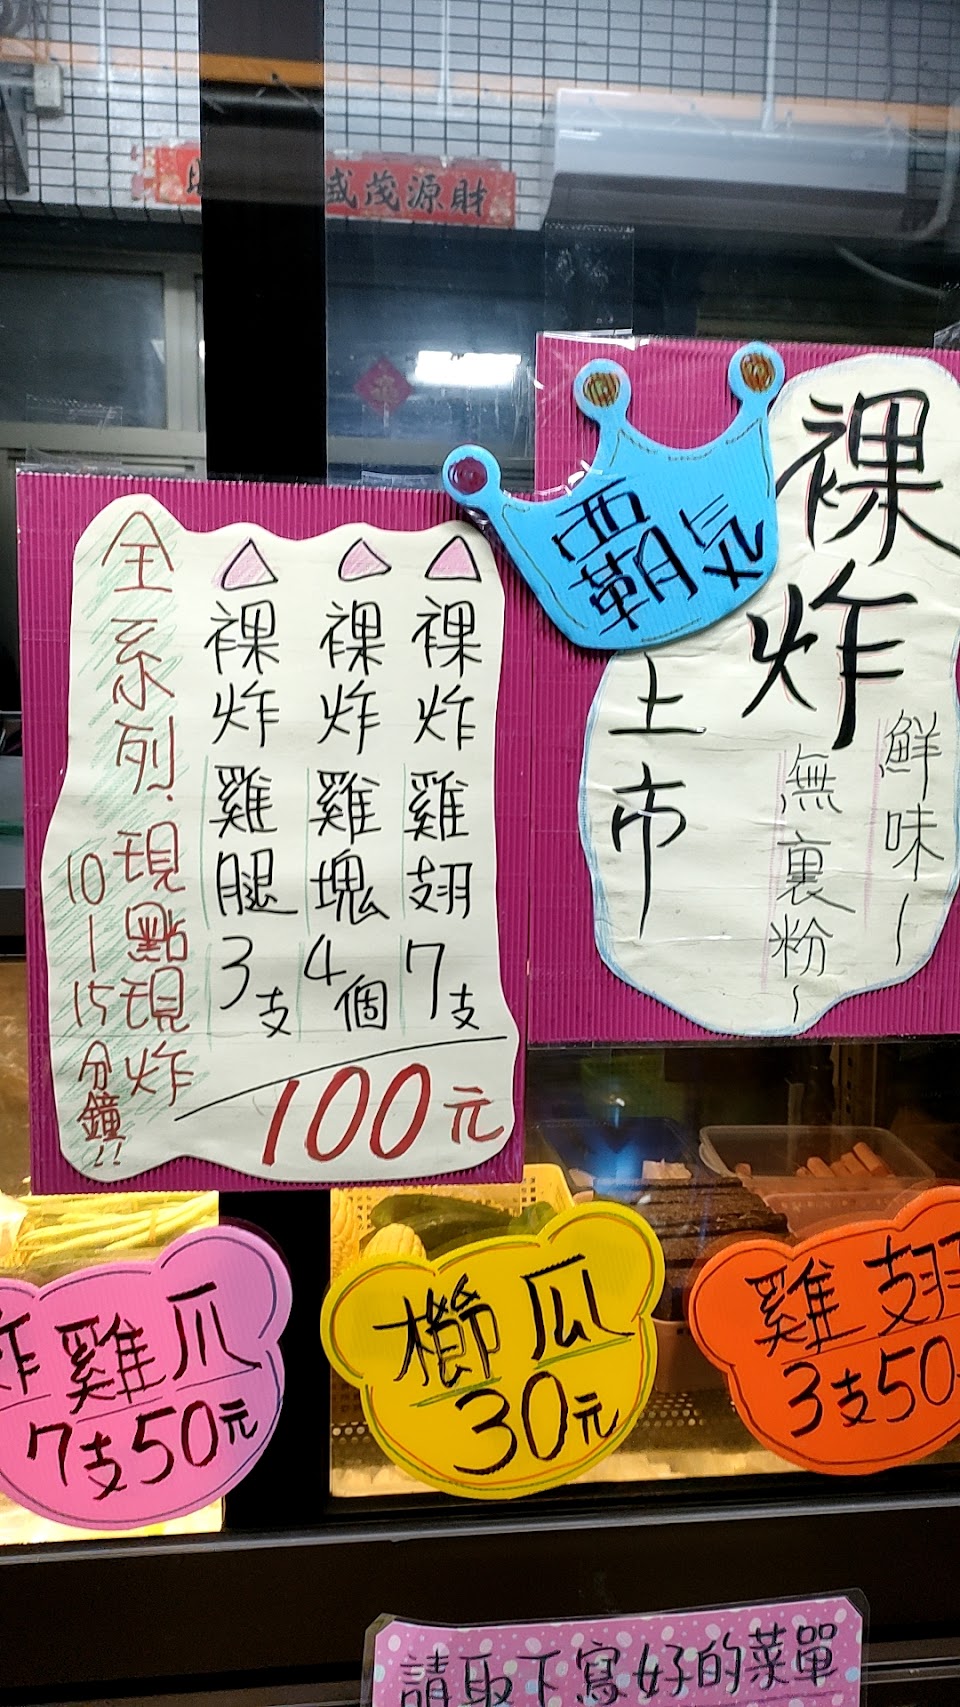 財源茂盛
霸气
裸炸
上市
鮮味~
無裏粉~
裸炸雞翅7支
裸炸雞塊4個
裸炸雞腿3支
100元
全系列.現點現炸
10-15分鐘!!
炸雞爪
7支50元
櫛瓜
30元
雞翅
3支50
請取下寫好的菜單